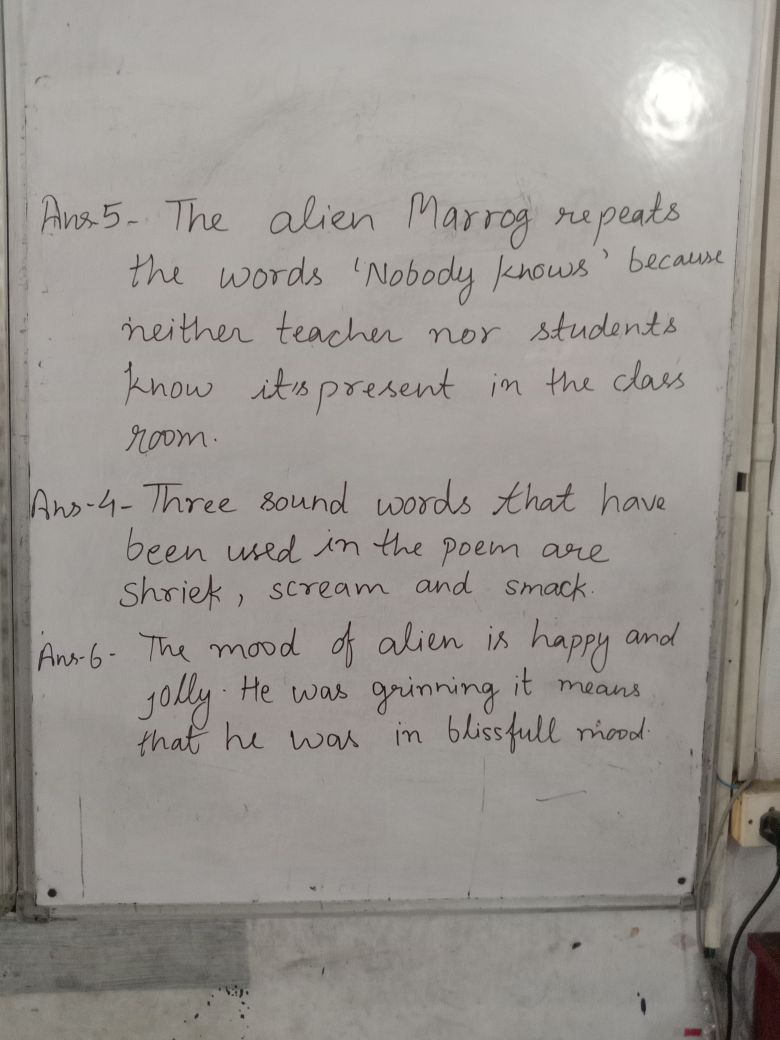 Ans-5- The alien Marrog repeats
the words 'Nobody knows' because
neither teacher nor students
know it's present in the class
room.
Ans-4- Three sound words that have
been used in the poem are
shriek, scream and smack.
Ans-6- The mood of alien is happy and
jolly. He was grinning it means
that he was in blissfull mood.